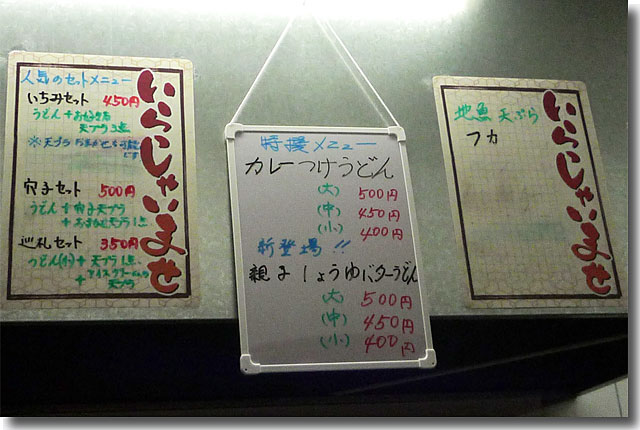 いらっしゃいませ
人気のセットメニュー
いちみセット 450円
うどん+お好きな
天プラ3点
穴子セット 500円
うどん+穴子天プラ
天プラ1点
巡礼セット 350円
うどん(小)+天プラ1点
+アイスクリームの
天プラ
特撰メニュー
カレーつけうどん
(大) 500円
(中) 450円
(小) 400円
新登場!!
親子しょうゆバターうどん
(大) 500円
(中) 450円
(小) 400円
いらっしゃいませ
地魚天ぷら
フカ